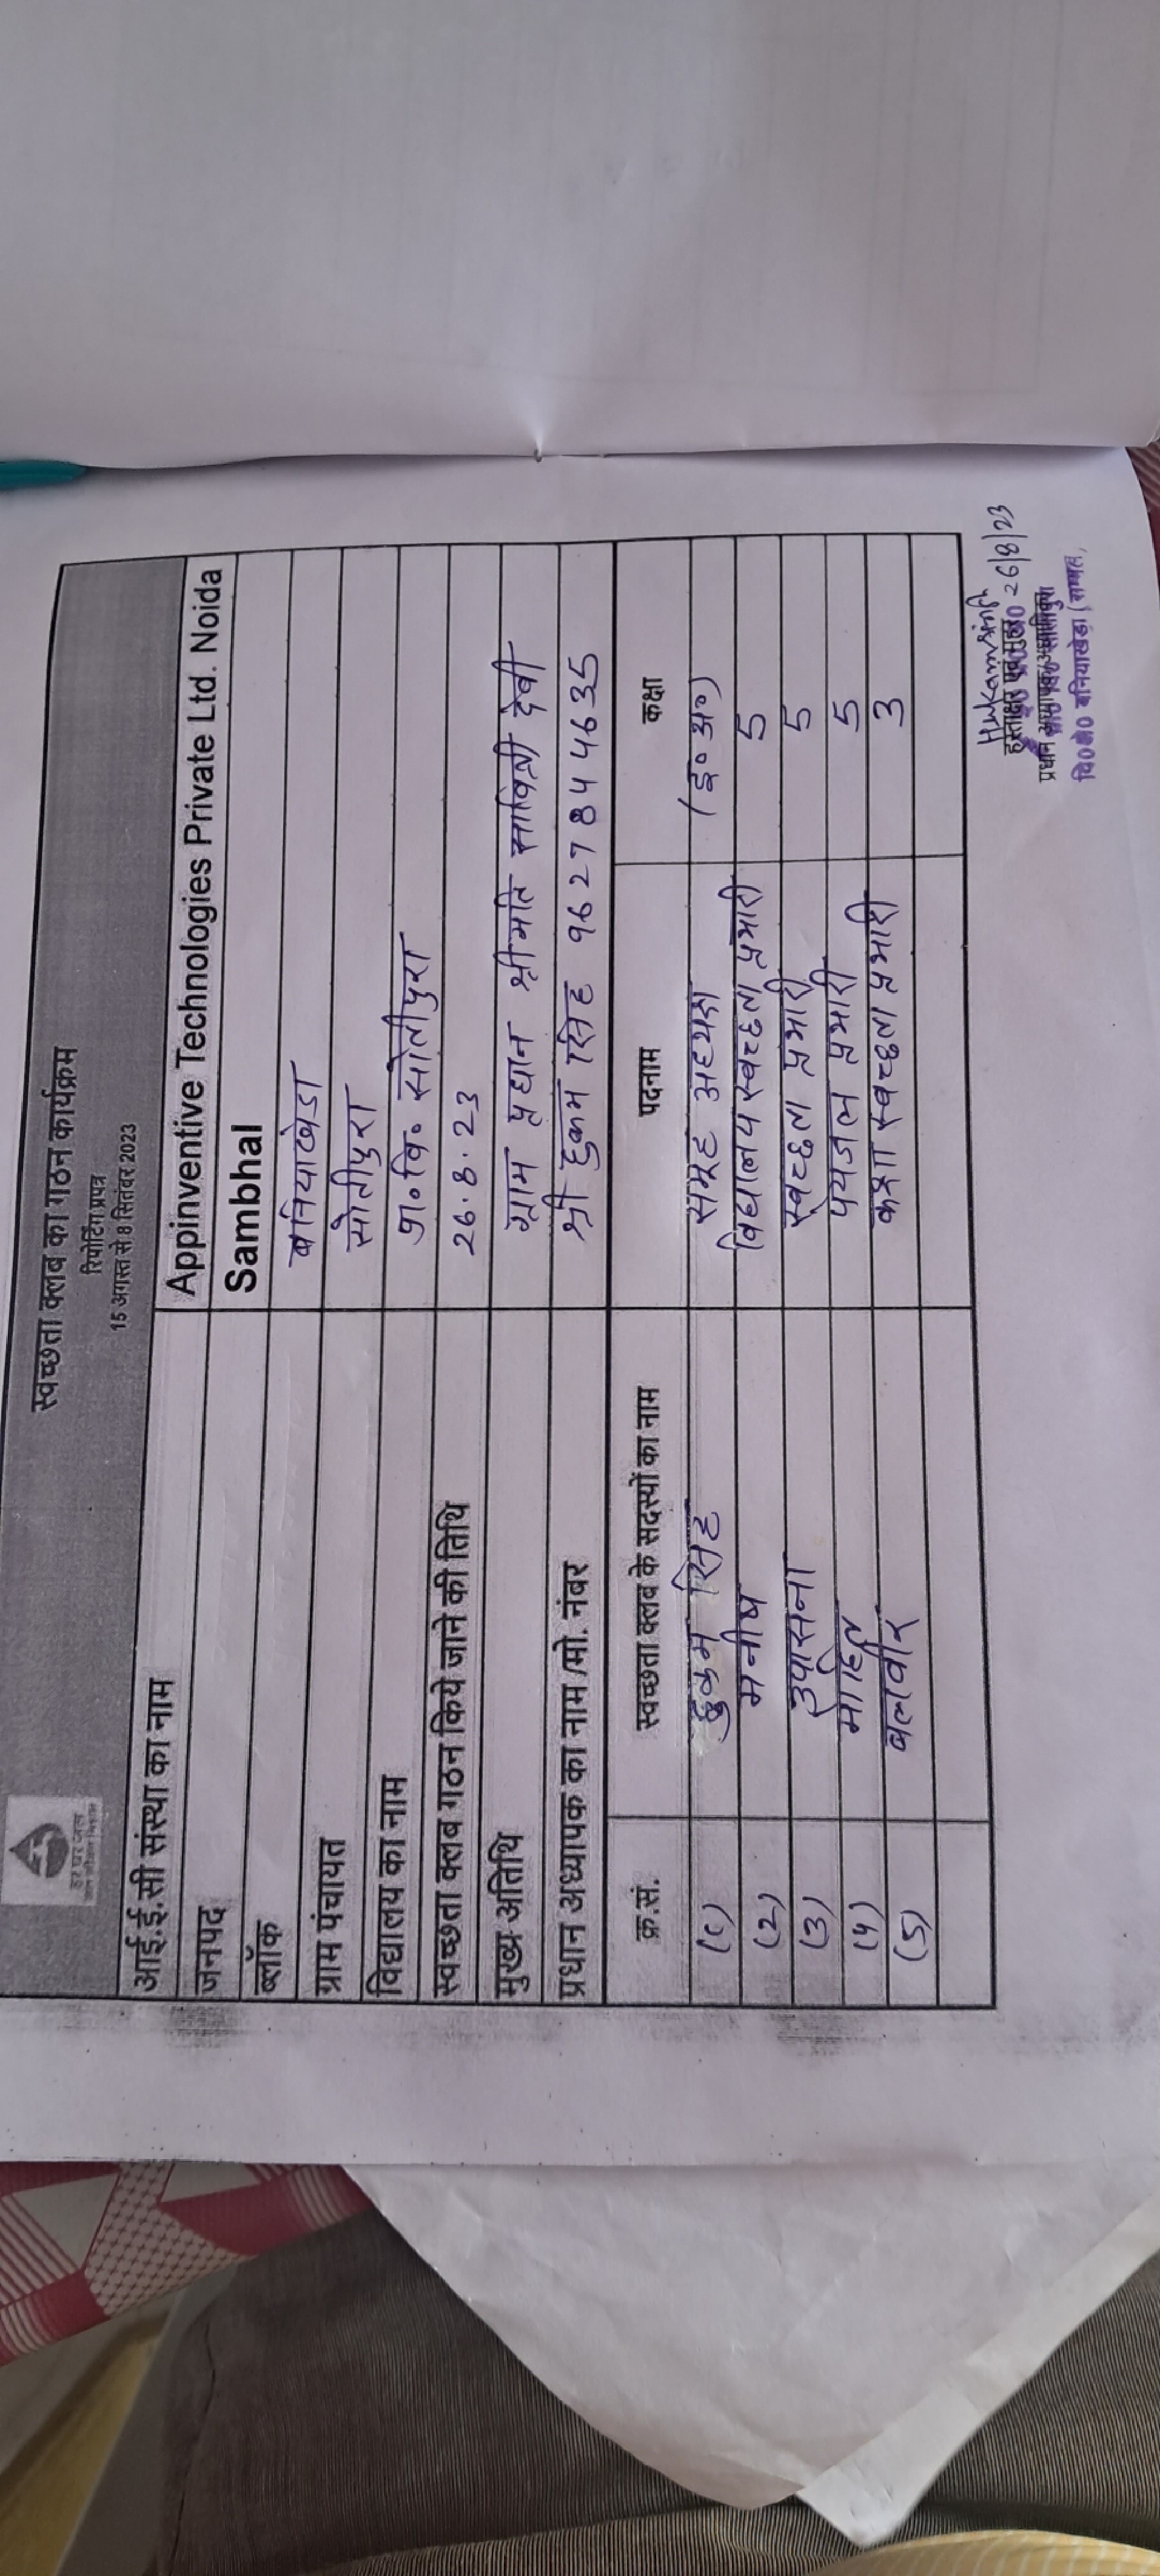 हर घर जल
जल जीवन मिशन
स्वच्छता क्लब का गठन कार्यक्रम
रिपोर्टिंग प्रपत्र
15 अगस्त से 8 सितंबर 2023
आई.ई.सी संस्था का नाम Appinventive Technologies Private Ltd. Noida
जनपद Sambhal
ब्लॉक बनियाखेडा
ग्राम पंचायत सोतीपुरा
विद्यालय का नाम प्रा॰ वि॰ सोतीपुरा
स्वच्छता क्लब गठन किये जाने की तिथि 26.8.23
मुख्य अतिथि ग्राम प्रधान श्रीमति सावित्री देवी
प्रधान अध्यापक का नाम /मो. नंबर श्री हुकम सिंह 9627844635
क्र.सं. स्वच्छता क्लब के सदस्यों का नाम पदनाम कक्षा
(1) हुकम सिंह समूह अध्यक्ष (इ॰ अ॰)
(2) मनीष विद्यालय स्वच्छता प्रभारी 5
(3) उपासना स्वच्छता प्रभारी 5
(4) पेयजल प्रभारी 5
(5) बलवीर कक्षा स्वच्छता प्रभारी 3
Hukam Singh
हस्ताक्षर एवं मुहर 26/8/23
प्रधान अध्यापक/अध्यापिका
वि0क्षे0 बनियाखेडा (सम्भल)